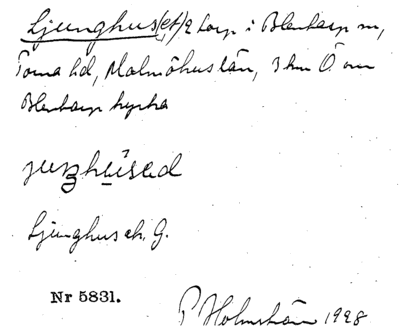 Ljunghus(et), 2 torp i Blentarp sn,
Torna hd, Malmöhus län, 3 km Ö om
Blentarp kyrka
Ljunghus ek. G.
Nr 5831.
P Holmström 1928